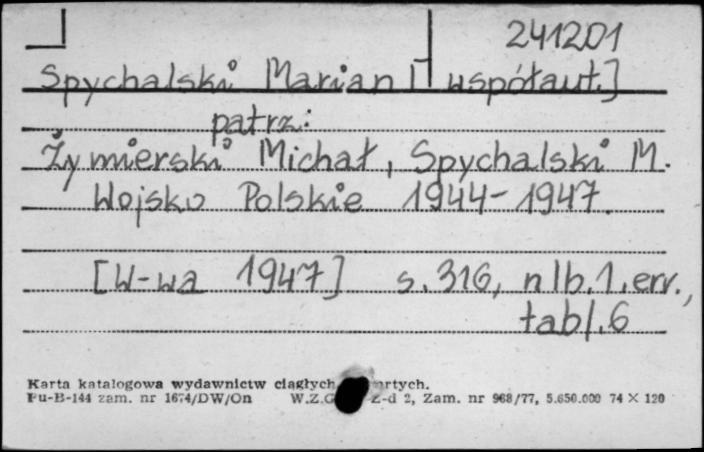 241201
Spychalski Marian [współaut.]
patrz:
Żymierski Michał, Spychalski M.
Wojsko Polskie 1944-1947.
[W-wa 1947] s. 316, nlb. 1, err.,
tabl. 6
Karta katalogowa wydawnictw ciągłych
Pu-B-144 zam. nr 1674/DW/On W.Z.G. Z-d 2, Zam. nr 968/77, 5.650.000 74 × 120